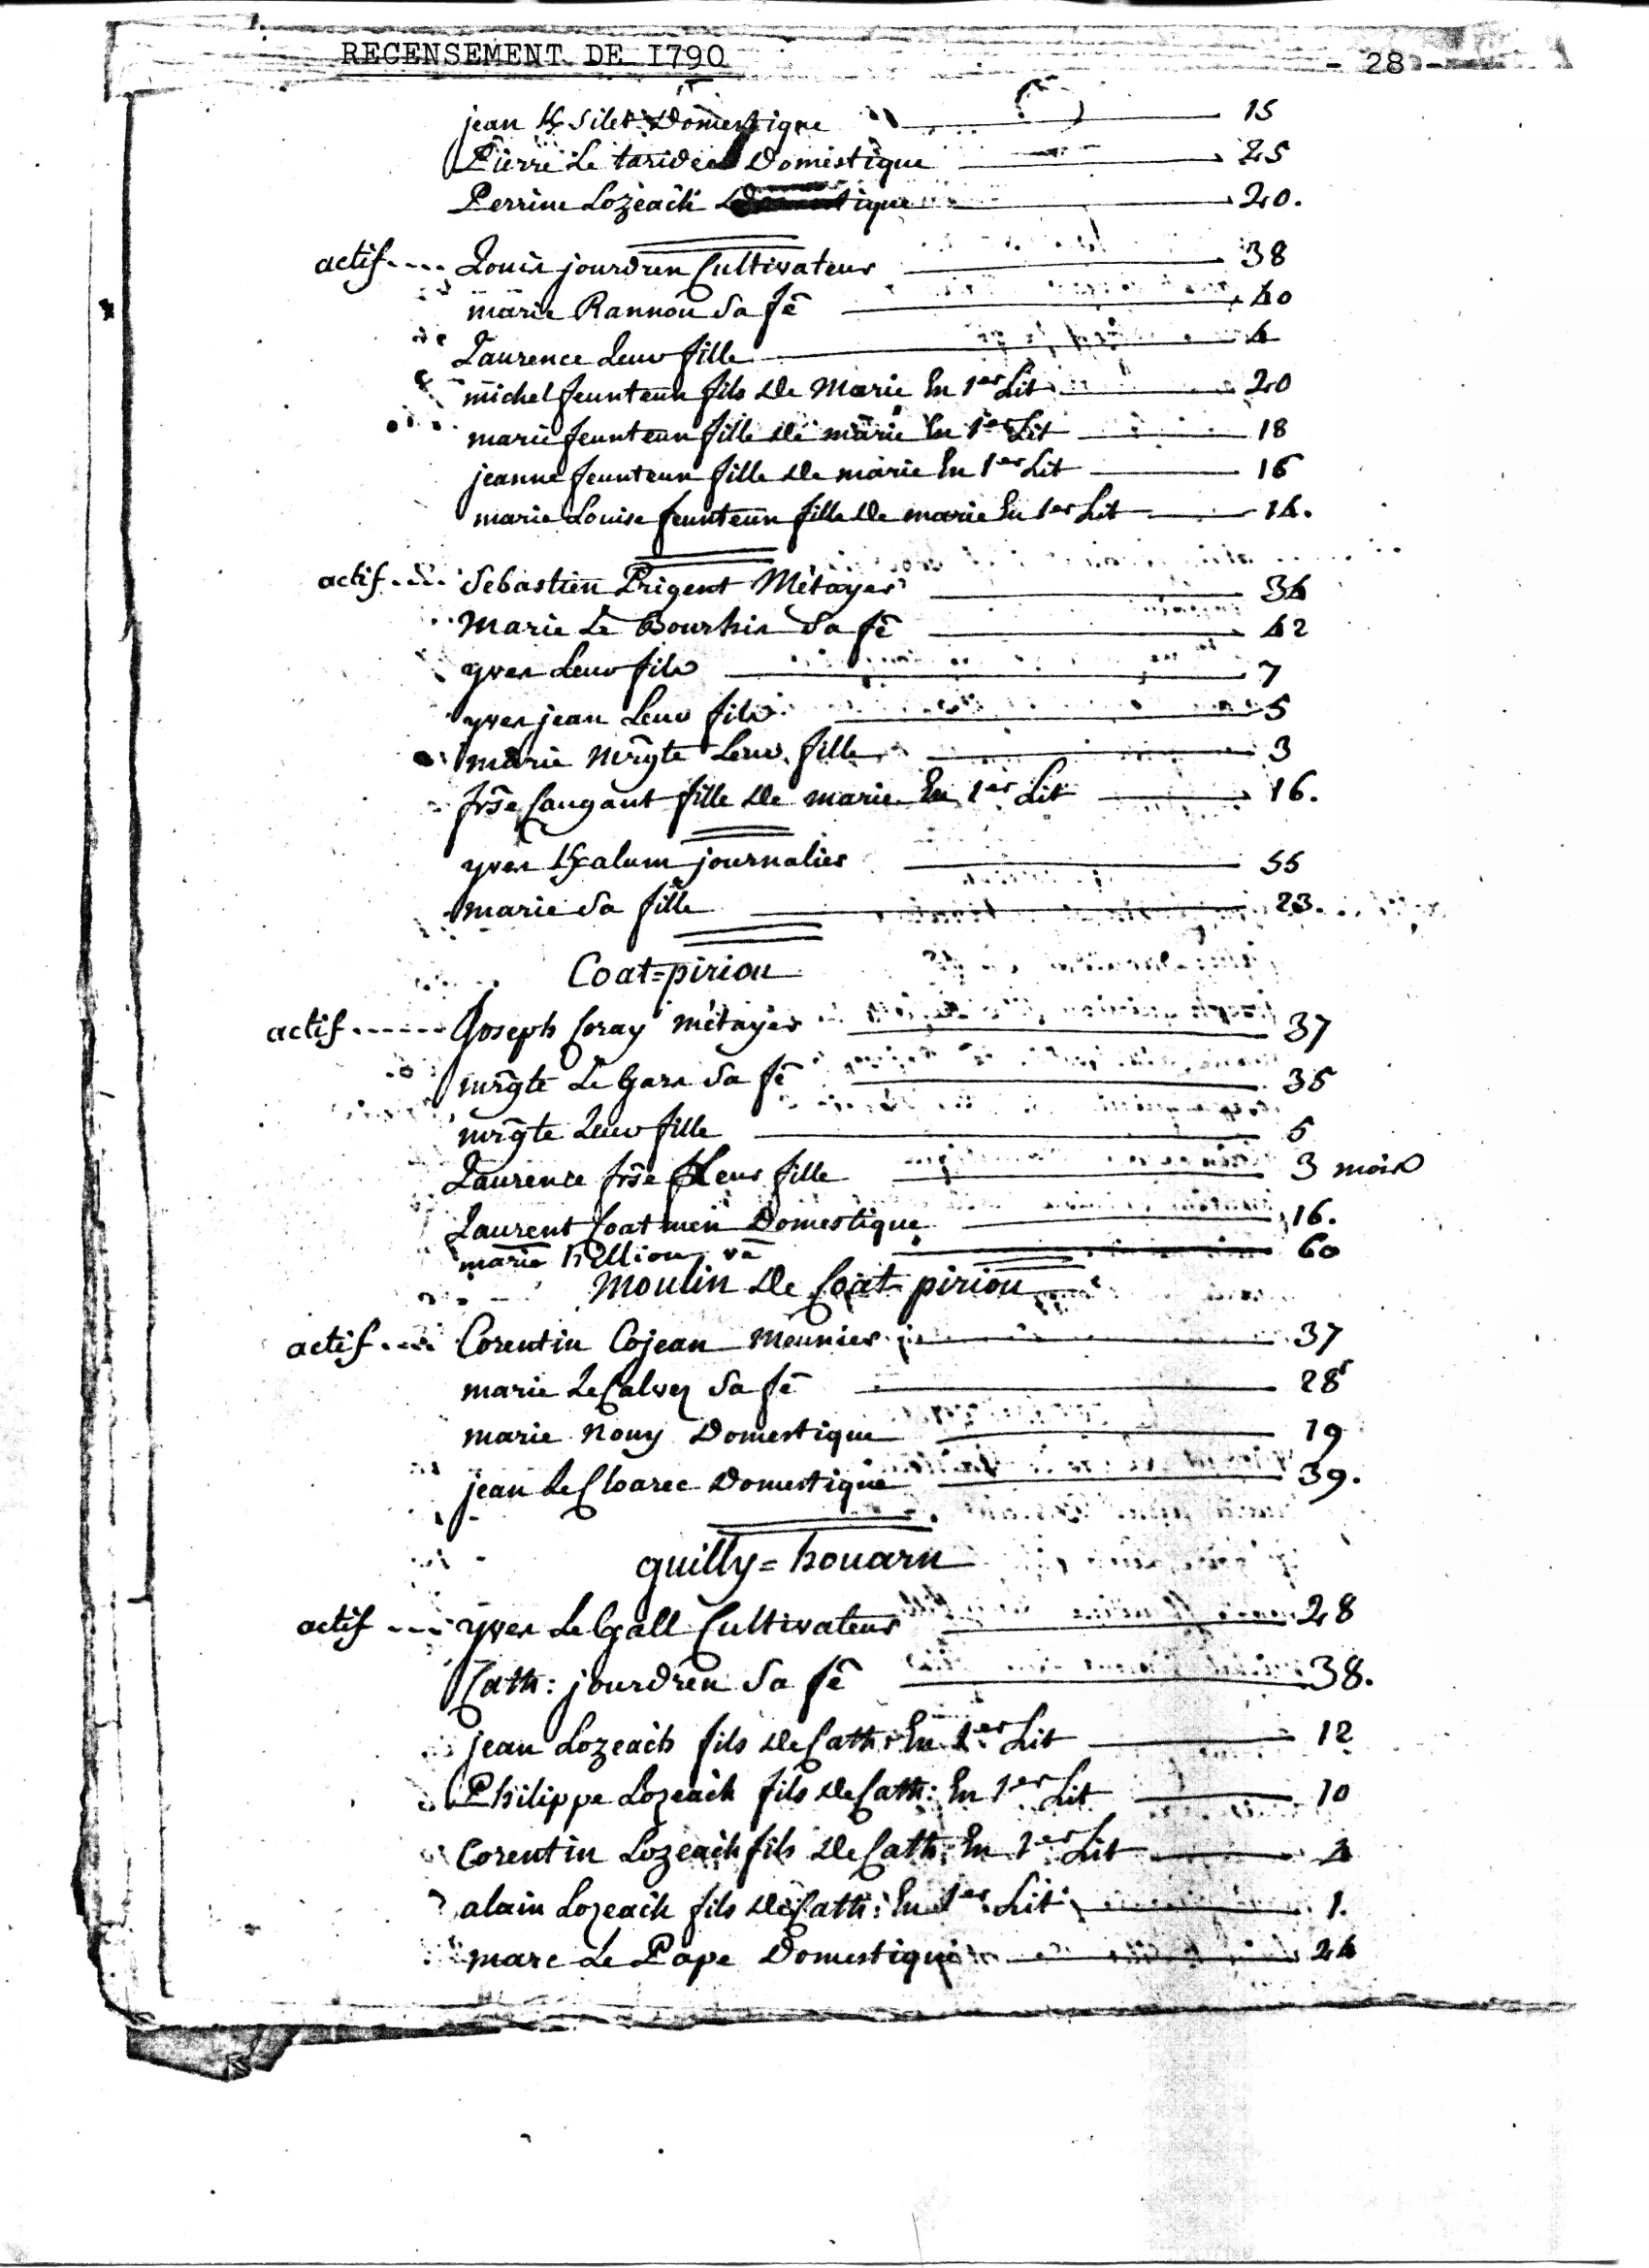 RECENSEMENT DE I790 - 28 -
jean K Silet Domestique 15
Pierre Le taridec Domestique 25
Perrine Lozeach Domestique 20.
actif.... Louis jourdren Cultivateur 38
marie Rannou Sa fe 40
Laurence Leur fille 4
michel feunteun fils De Marie En 1er Lit 20
marie feunteun fille De marie En 1er Lit 18
jeanne feunteun fille De marie En 1er Lit 16
marie Louise feunteun fille De marie En 1er Lit 14.
actif.... Sebastien Prigent Métayer 34
Marie Le Bourhis Sa fe 42
yves Leur fils 7
yves jean Leur fils 5
marie mrgte Leur fille 3
frse Caugant fille De marie En 1er Lit 16.
yves Kalum journalier 55
marie Sa fille 23.
Coat=piriou
actif...... Joseph Coray métayer 37
mrgte Le Gars Sa fe 35
mrgte Leur fille 5
Laurence frse Leur fille 3 mois
Laurent Coatmen Domestique 16.
marie helliou ve 60
Moulin De Coat piriou
actif.... Corentin Cojean Meunier 37
marie Le Calvez Sa fe 28
marie Nouy Domestique 19
jean Le Cloarec Domestique 39.
quilly=houarn
actif.... yves Le Gall Cultivateur 28
Cath: jourdren Sa fe 38.
jean Lozeach fils De Cath: En 1er Lit 12
Philippe Lozeach fils De Cath: En 1er Lit 10
Corentin Lozeach fils De Cath: En 1er Lit 4
alain Lozeach fils De Cath: En 1er Lit 1.
marc Le Pape Domestique 24